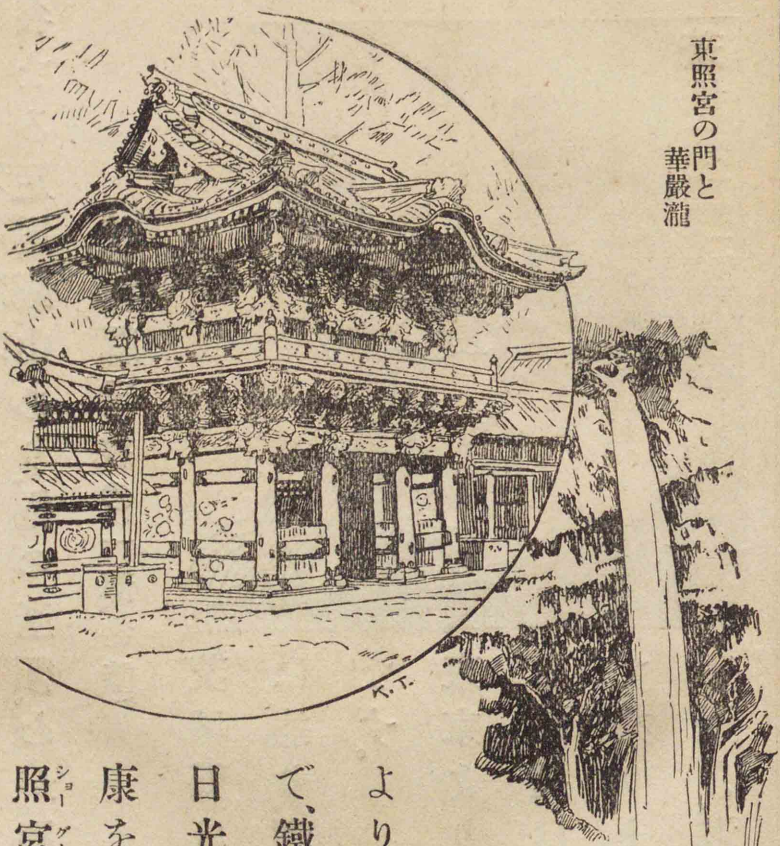 東照宮の門と
華嚴瀧
K.T.
より
で、鐵
日光
康を
照宮
ショーグ